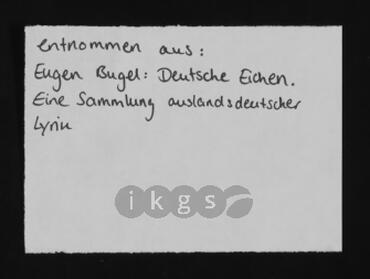 entnommen aus:
Eugen Bugel: Deutsche Eichen.
Eine Sammlung auslandsdeutscher
Lyrik
ikgs